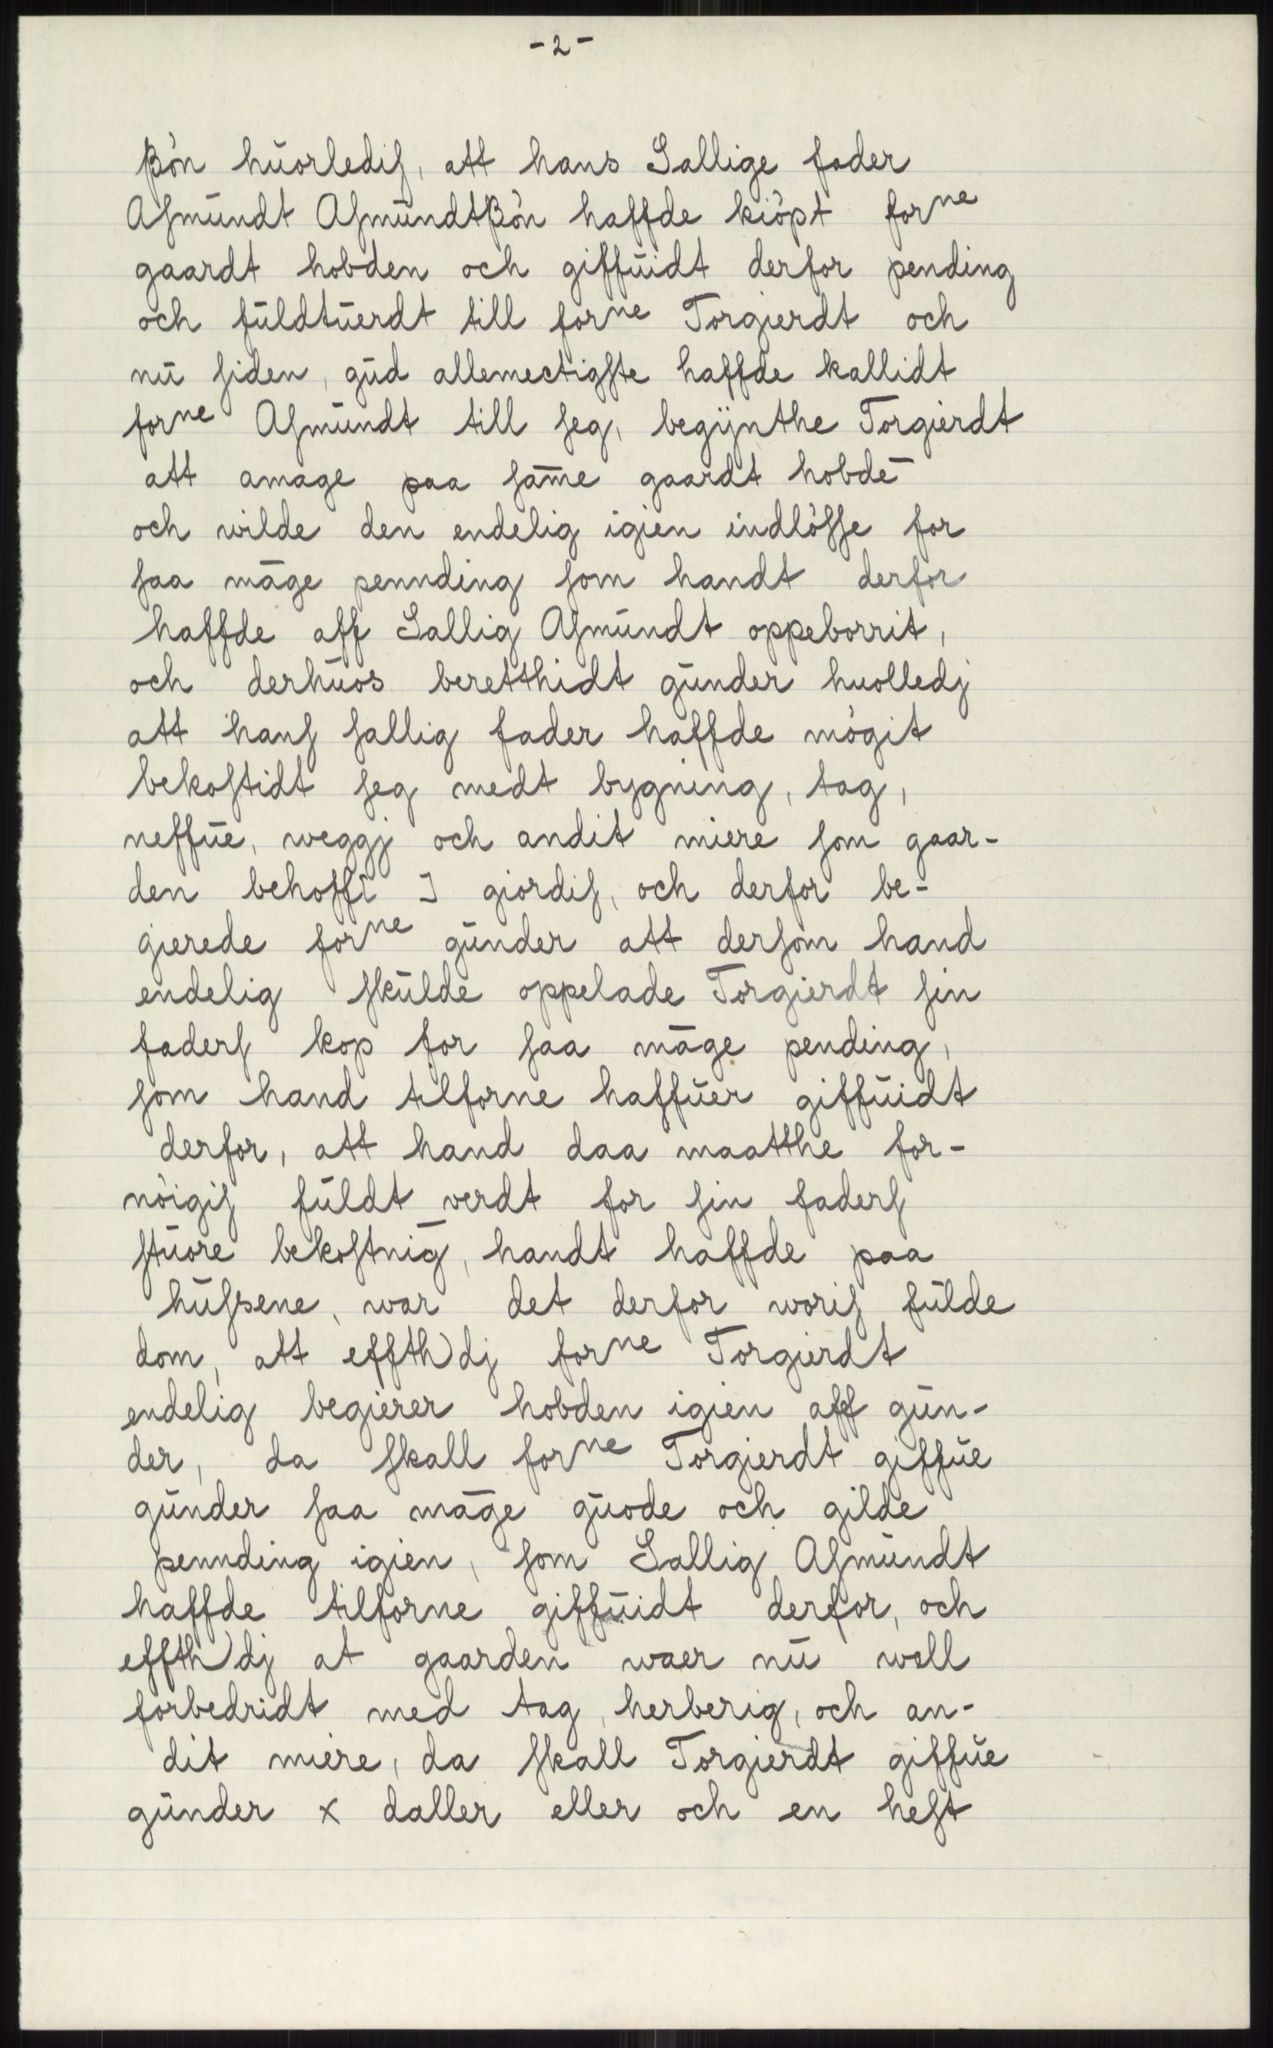 - 2 -
ßön huorlediſ, att hans Sallige fader
Aſmŭndt Aſmŭndtßön haffde kiöpt forne
gaardt hobden och giffŭidt derfor pending
och fŭldtŭerdt till forne Torgierdt och
nŭ ſiden, gŭd allemectigſte haffde kallidt
forne Aſmŭndt till ſeg, begÿnthe Torgierdt
att amage paa ſam̄e gaardt hobdē
och wilde den endelig igien indlöſſe for
ſaa māge pennding ſom handt derfor
haffde aff Sallig Aſmŭndt oppeborrit,
och derhŭos beretthidt gŭnder huolledj
att hanſ ſallig fader haffde mögit
bekoſtidt ſeg medt bygning, tag,
neffŭe, weggj och andit miere ſom gaar-
den behoffr̄ I giordiſ, och derfor be-
gierede forne gŭnder att derſom hand
endelig ſkŭlde oppelade Torgierdt ſin
faderſ kop for ſaa māge pending,
ſom hand tilforne haffŭer giffŭidt
derfor, att hand daa maatthe for-
nöigiſ fŭldt verdt for ſin faderſ
ſtŭore bekoſtnīg, handt haffde paa
hŭſsene, war det derfor woriſ fŭlde
dom, att effth)dj forne Torgierdt
endelig begierer hobden igien aff gŭn-
der, da ſkall forne Torgierdt giffŭe
gŭnder ſaa māge gŭode och gilde
pennding igien, ſom Sallig Aſmŭndt
haffde tilforne giffŭidt derfor, och
effth)dj at gaarden waer nŭ woll
forbedridt med tag, herberig, och an-
dit miere, da ſkall Torgierdt giffŭe
gŭnder x daller eller och en heſt